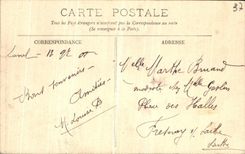 CARTE POSTALE
Tous les Pays étrangers n'acceptent pas la Correspondance au recto
(Se renseigner à la Poste).
CORRESPONDANCE
ADRESSE
Bons souvenirs
Amitiés
M. Louise B
Melle Marthe
modiste
Place des Halles
Fresnay s/ Sarthe
Sarthe
37